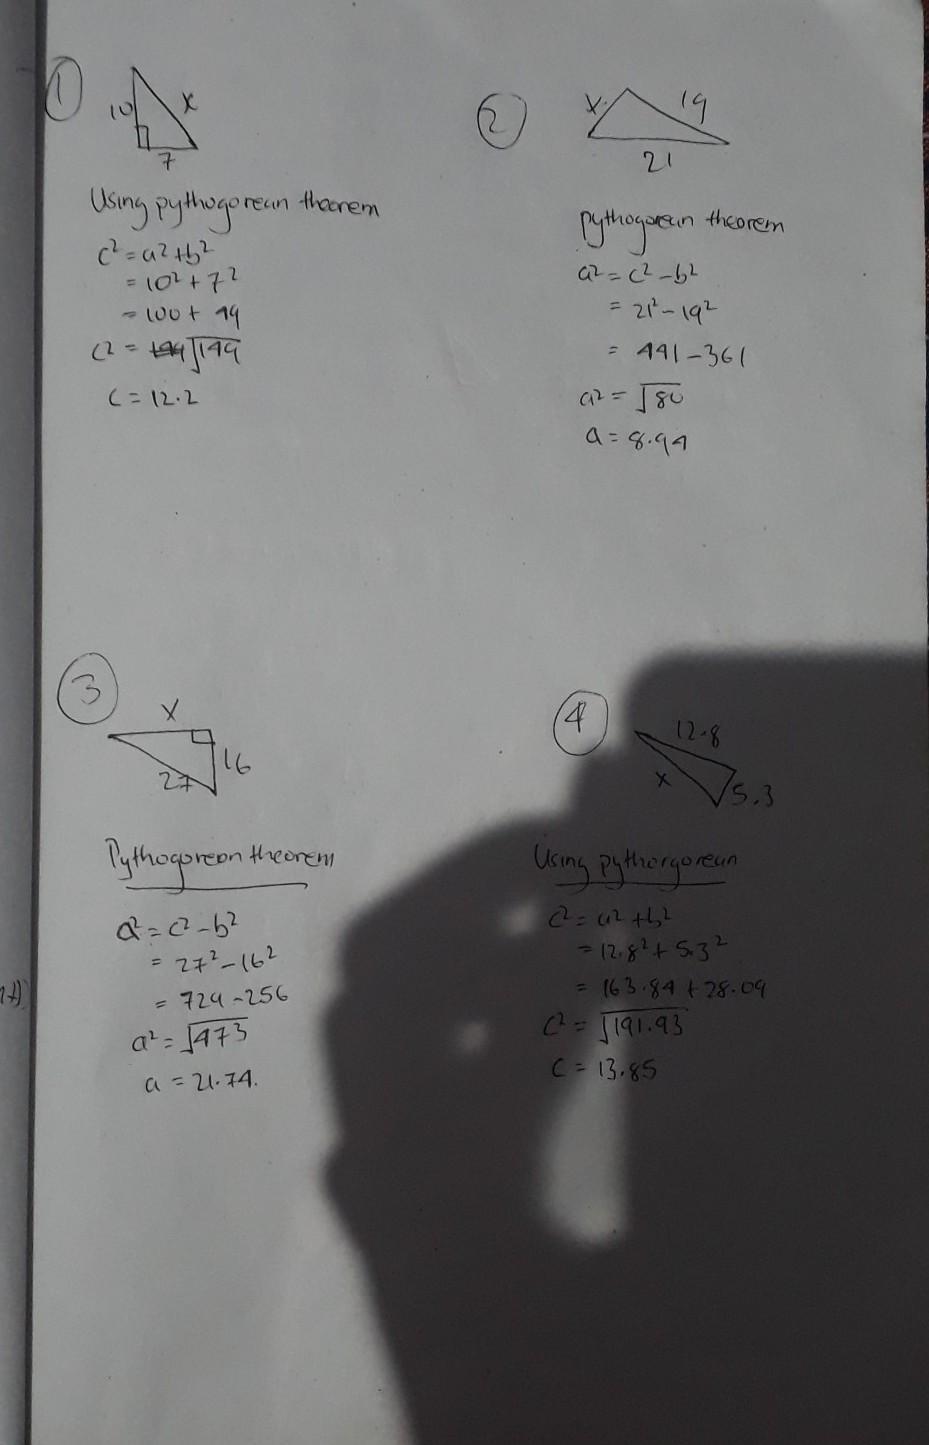 1
10
x
7
Using pythogorean theorem
c² = a² + b²
= 10² + 7²
= 100 + 49
c² = √149
c = 12.2
2
x
19
21
pythogorean theorem
a² = c² - b²
= 21² - 19²
= 441 - 361
a² = √80
a = 8.94
3
x
16
27
Pythogorean theorem
a² = c² - b²
= 27² - 16²
= 729 - 256
a² = √473
a = 21.74.
4
12.8
x
5.3
Using pythorgorean
c² = a² + b²
= 12.8² + 5.3²
= 163.84 + 28.09
c² = √191.93
c = 13.85